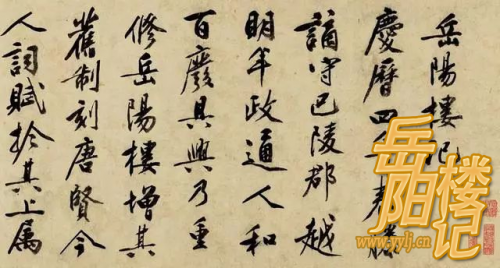 岳陽樓記
慶曆四年春滕
謫守巴陵郡越
明年政通人和
百廢具興乃重
修岳陽樓增其
舊制刻唐賢今
人詞賦於其上屬
岳阳楼记
www.yylj.cn